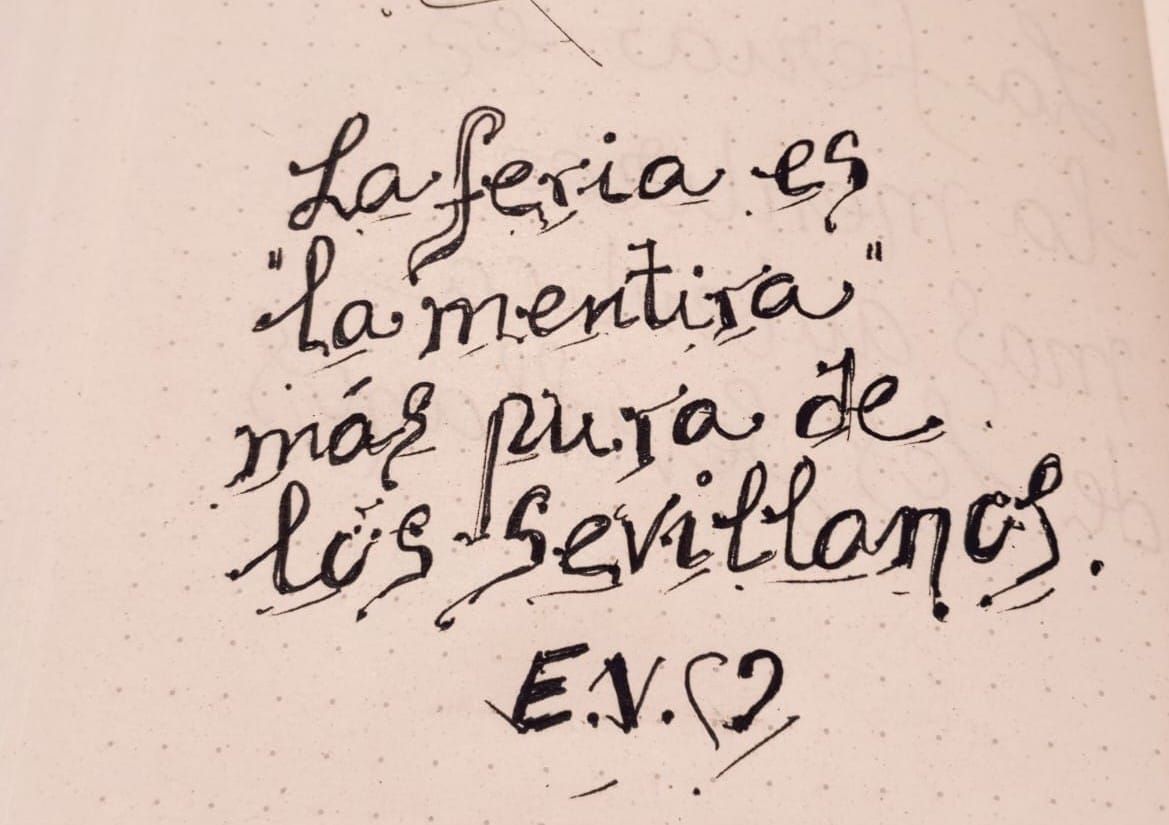 La feria es
"la mentira"
más pura de
los sevillanos.
E.V.♡